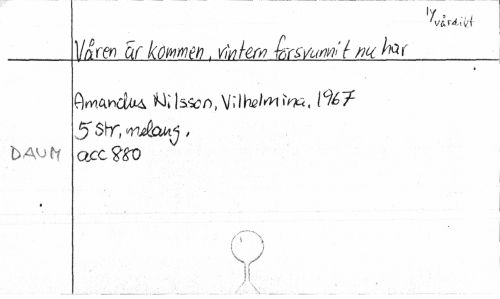 14/vårdikt
Våren är kommen, vintern försvunnit nu har
Amandus Nilsson, Vilhelmina, 1967
5 str, melang.
DAUM acc 880